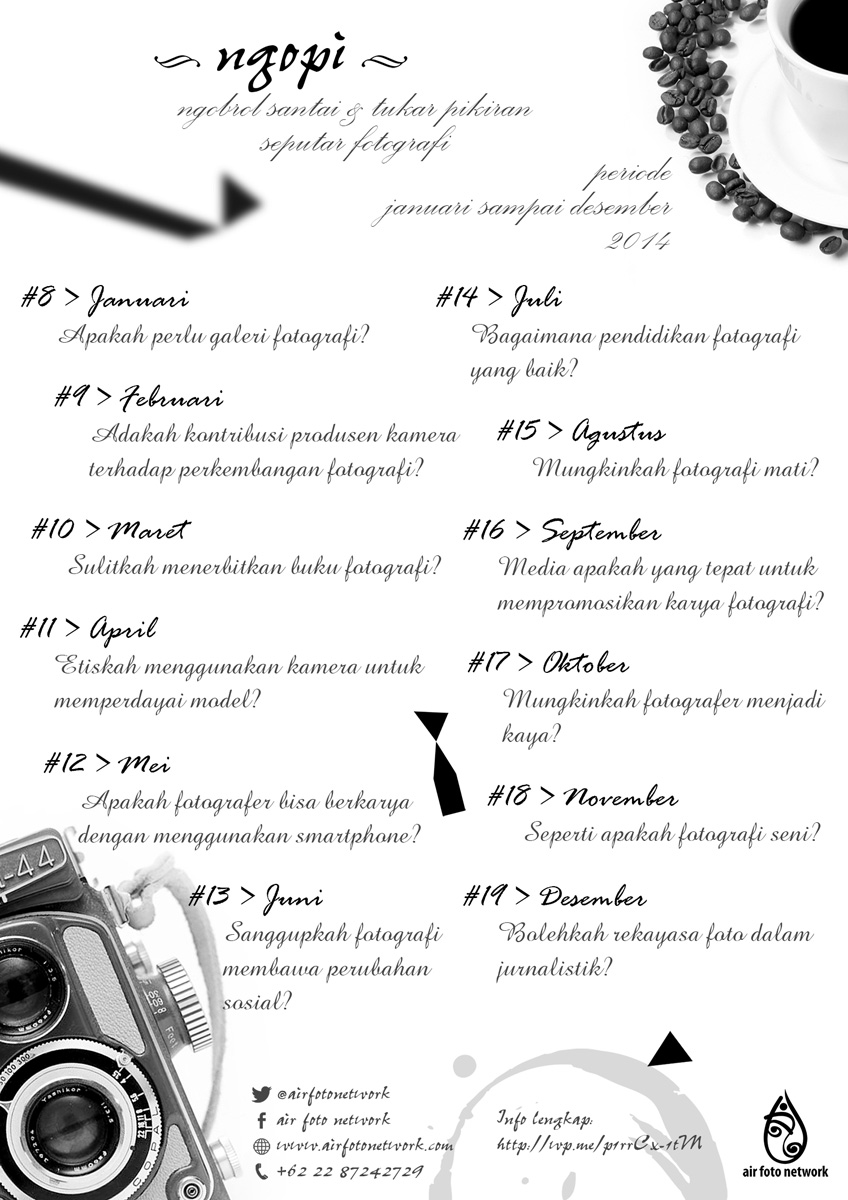 ngopi
ngobrol santai & tukar pikiran
seputar fotografi
periode
januari sampai desember
2014
#8 > Januari
Apakah perlu galeri fotografi?
#9 > Februari
Adakah kontribusi produsen kamera
terhadap perkembangan fotografi?
#10 > Maret
Sulitkah menerbitkan buku fotografi?
#11 > April
Etiskah menggunakan kamera untuk
memperdayai model?
#12 > Mei
Apakah fotografer bisa berkarya
dengan menggunakan smartphone?
#13 > Juni
Sanggupkah fotografi
membawa perubahan
sosial?
#14 > Juli
Bagaimana pendidikan fotografi
yang baik?
#15 > Agustus
Mungkinkah fotografi mati?
#16 > September
Media apakah yang tepat untuk
mempromosikan karya fotografi?
#17 > Oktober
Mungkinkah fotografer menjadi
kaya?
#18 > November
Seperti apakah fotografi seni?
#19 > Desember
Bolehkah rekayasa foto dalam
jurnalistik?
-44
Yashinon
@airfotonetwork
air foto network
www.airfotonetwork.com
+62 22 87242729
Info lengkap:
http://wp.me/p1rrCx-1tM
air foto network